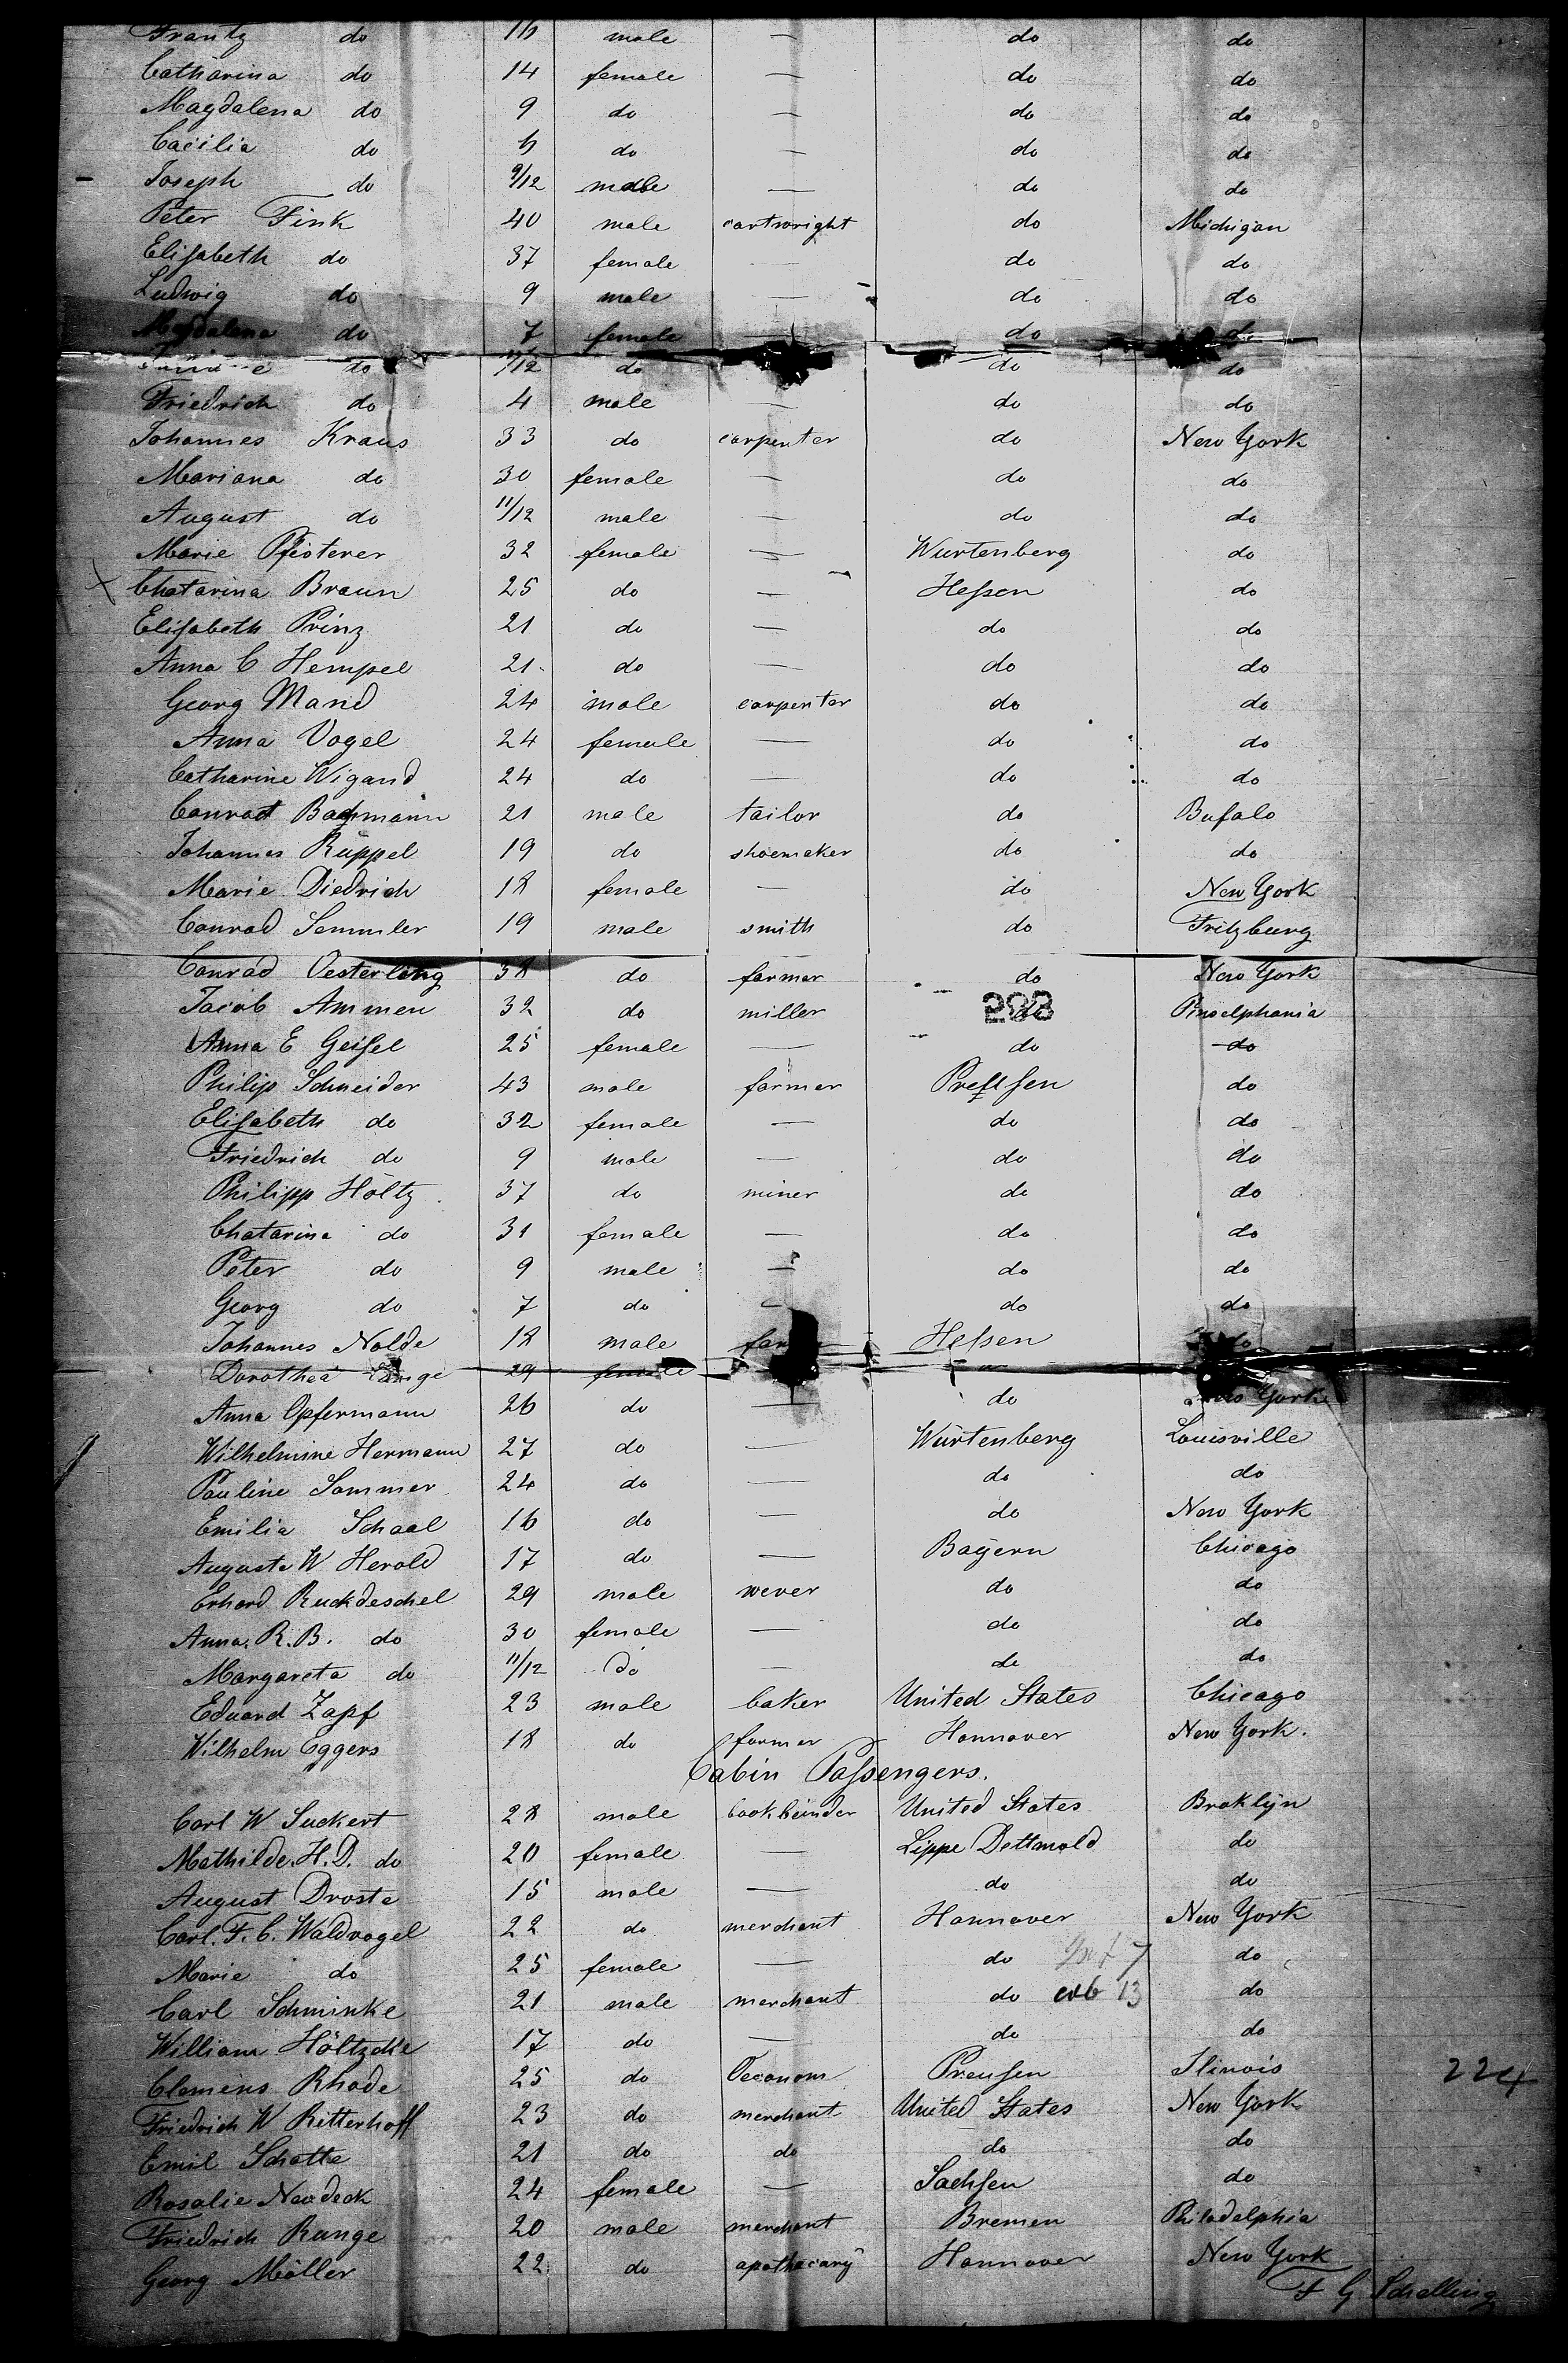 Frantz do 16 male — do do
Catharina do 14 female — do do
Magdalena do 9 do — do do
Cacilia do 6 do — do do
Joseph do 9/12 male — do do
Peter Fink 40 male cartwright do Michigan
Elisabeth do 37 female — do do
Ludwig do 9 male — do do
Magdalena do 7 female — do do
do /12 do do do
Friedrich do 4 male — do do
Johannes Kraus 33 do carpenter do New York
Mariana do 30 female — do do
August do 11/12 male — do do
Marie Pfisterer 32 female — Wurtenberg do
Chatarina Braun 25 do — Hessen do
Elisabeth Prinz 21 do — do do
Anna C Hempel 21 do — do do
Georg Mand 24 male carpenter do do
Anna Vogel 24 female — do do
Catharine Wigand 24 do — do do
Conrad Bachmann 21 male tailor do Bufalo
Johannes Rüppel 19 do shoemaker do do
Marie Diedrich 18 female — do New York
Conrad Semmler 19 male smith do Fritzburg
Conrad Oesterling 38 do farmer do New York
Jacob Ammen 32 do miller 298 Pinselphania
Anna E Geisel 25 female — do do
Philip Schneider 43 male farmer Preussen do
Elisabeth do 32 female — do do
Friedrich do 9 male — do do
Philipp Höltz 37 do miner do do
Chatarina do 31 female — do do
Peter do 9 male — do do
Georg do 7 do — do do
Johannes Nolde 18 male Hessen do
Dorothea 29 female
Anna Opfermann 26 do — do New York
Wilhelmine Hermann 27 do — Würtenberg Louisville
Pauline Sommer 24 do — do do
Emilia Schaal 16 do — do New York
Auguste W Herold 17 do — Bayern Chicago
Erhard Ruckdeschel 29 male wever do do
Anna. R. B. do 30 female — do do
Margareta do 11/12 do — do do
Eduard Zapf 23 male baker United States Chicago
Wilhelm Eggers 18 do farmer Hannover New York.
Cabin Passengers.
Carl W Suckert 28 male bookbünder United States Broklijn
Mathilde. H. D. do 20 female — Lippe Dettmold do
August Droste 15 male — do do
Carl. F. C. Waldvogel 22 do merchant Hannover New York
Marie do 25 female — do do
Carl Schminke 21 male merchant do 13 do
William Höltzcke 17 do — do do
Clemens Rhode 25 do Oeconom Preussen Ilinois 224
Friedrich W Ritterhoff 23 do merchant United States New York
Emil Schotte 21 do do do do
Rosalie Neudeck 24 female — Sachsen do
Friedrich Runge 20 male merchant Bremen Philadelphia
Georg Möller 22 do apothecary Hannover New York
F G Schelling